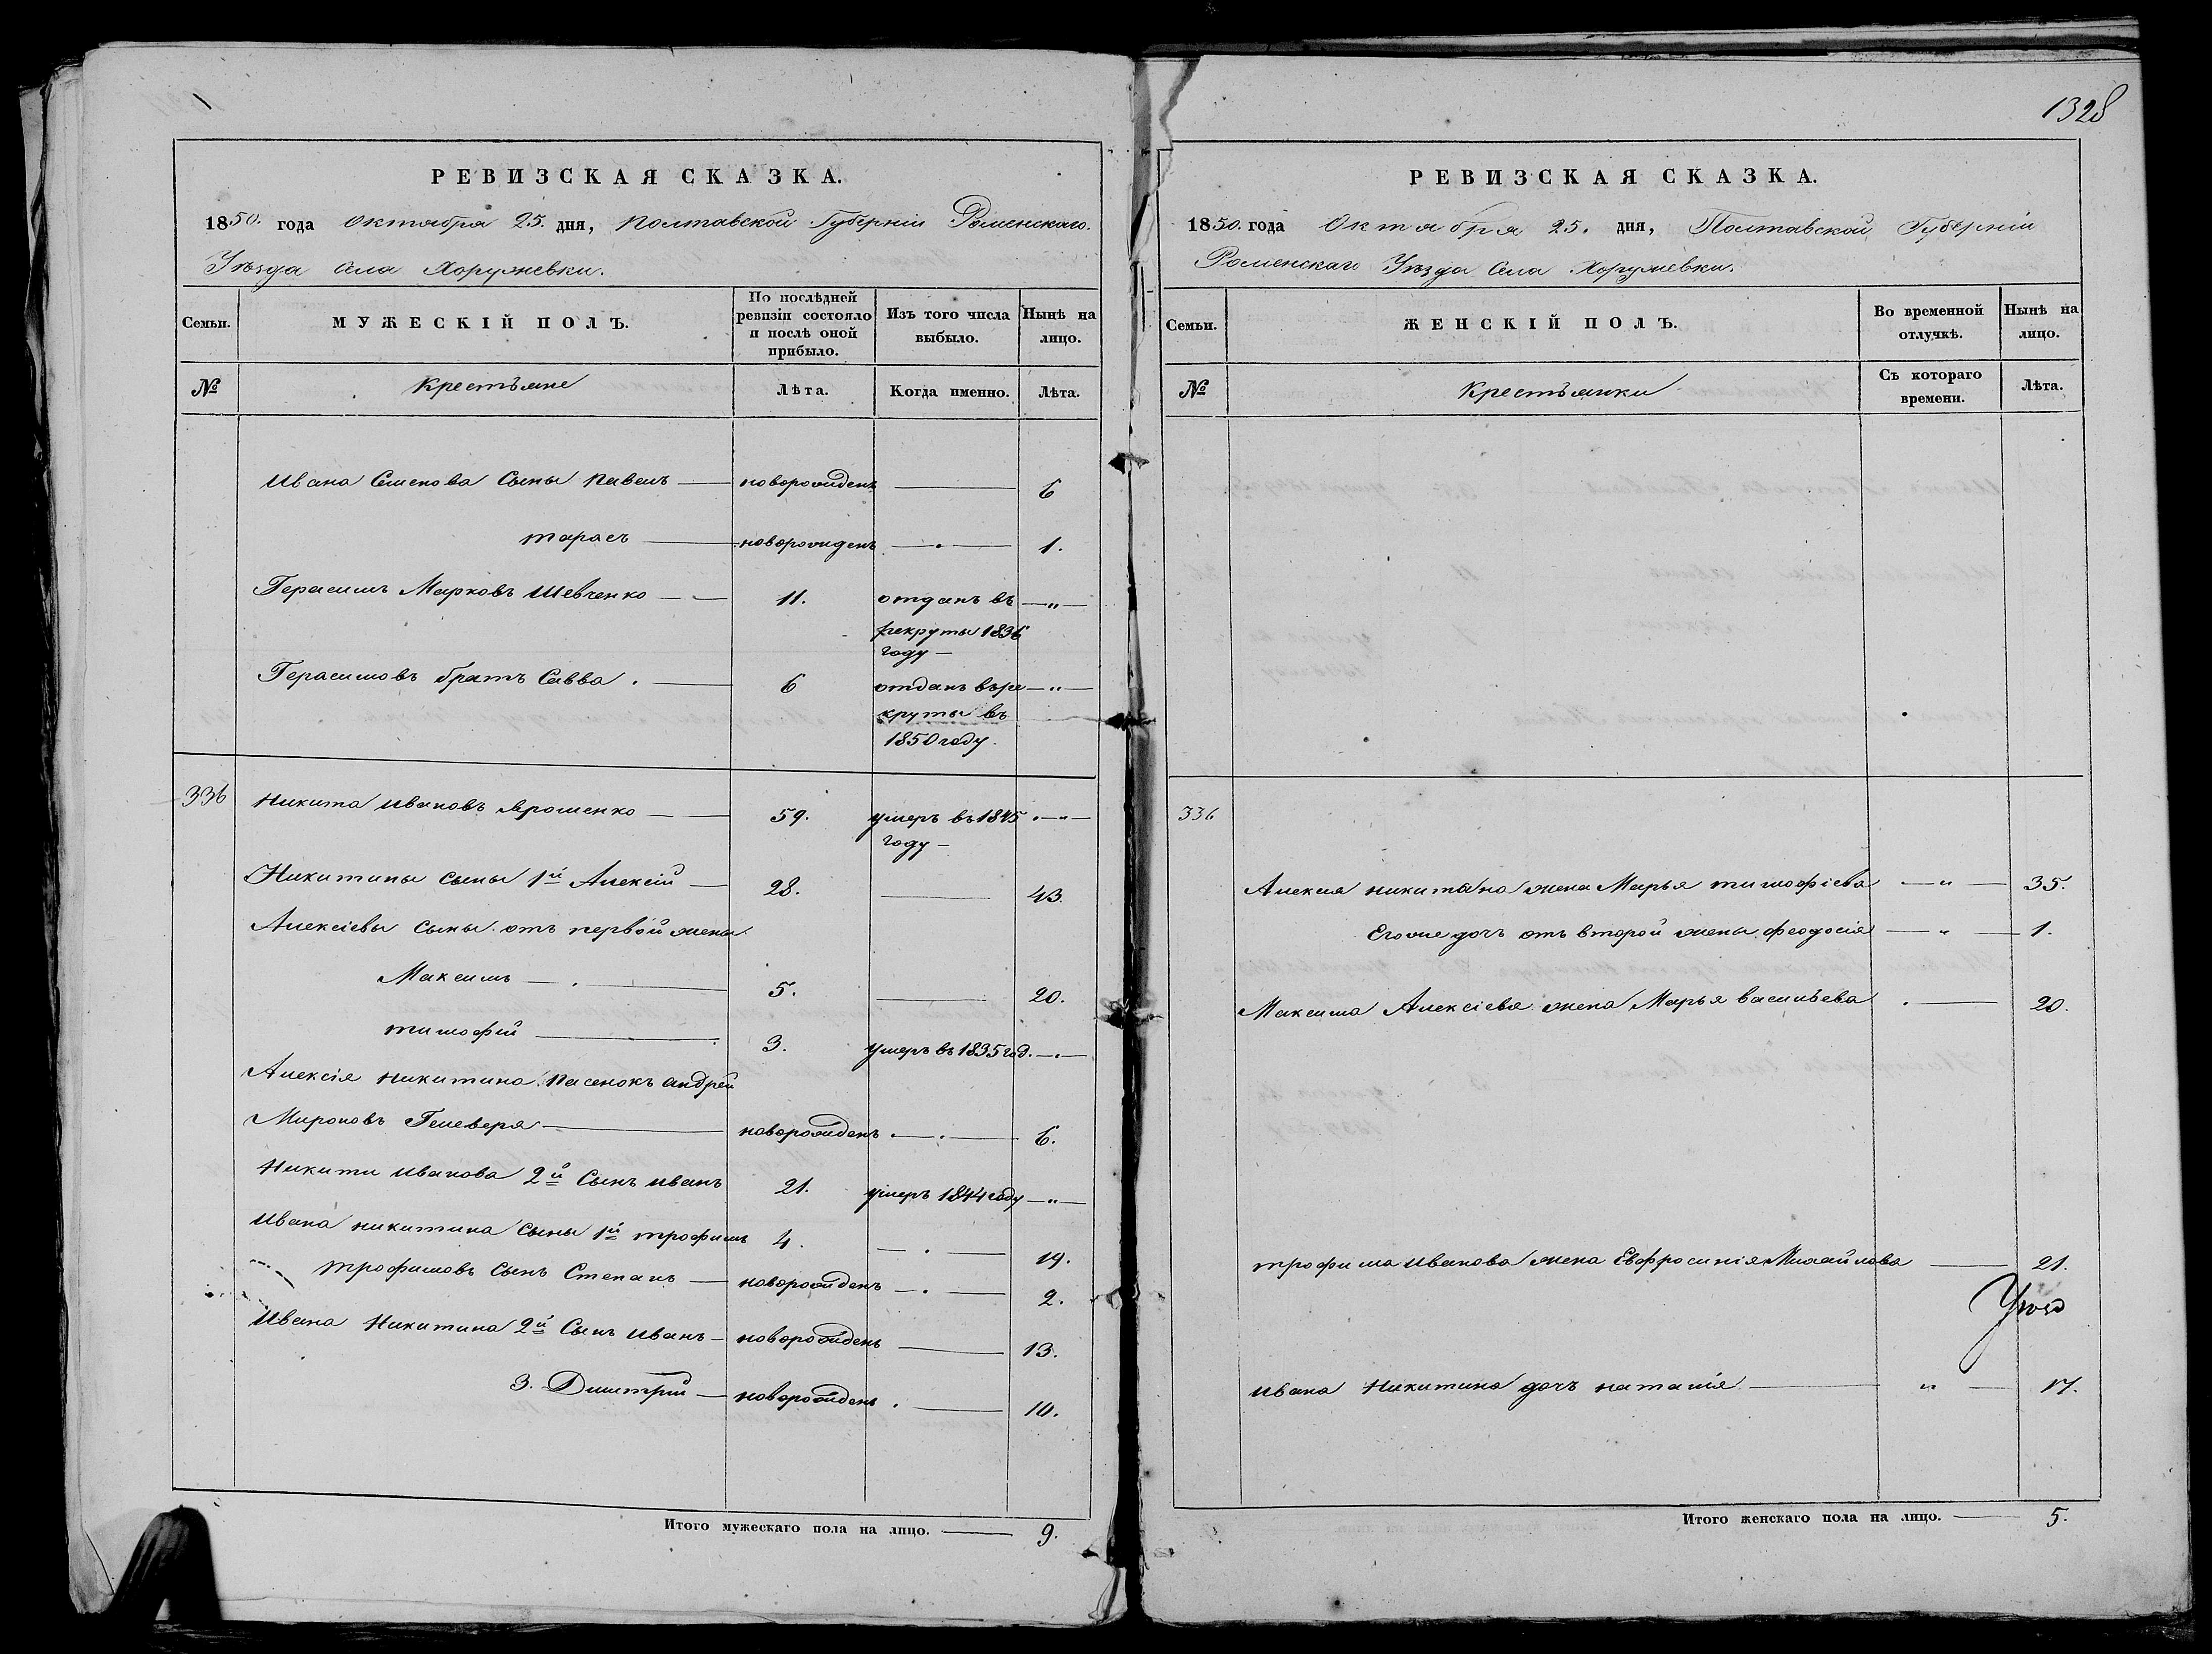 1328
РЕВИЗСКАЯ СКАЗКА.
1850. года Октября 25. дня, Полтавской Губерніи Роменскаго.
Уѣзда Села Хоружевки.
Семьи. МУЖЕСКІЙ ПОЛЪ. По послѣдней ревизіи состояло и послѣ оной прибыло. Изъ того числа выбыло. Нынѣ на лицо.
№ Крестьяне Лѣта. Когда именно. Лѣта.
Ивана Семенова Сыны Павелъ — новорожденъ — 6
тарасъ — новорожденъ — 1.
Герасимъ Марковъ Шевченко — 11. отданъ въ — „ —
рекруты 1836
году —
Герасимовъ братъ Савва. — 6 отданъ въ ре — „ —
круты въ
1850 году.
336 Никита Ивановъ Ярошенко — 59. умеръ въ 1845 — „ —
году —
Никитины сыны 1й Алексій — 28. — 43.
Алексіевы сыны отъ первой жены
Максимъ — 5. — 20.
тимофій — 3. умеръ въ 1835 год. — „ —
Алексія Никитина пасенокъ андрей
Мироновъ Гелеверя — новорожденъ — 6.
Никити Иванова 2й Сынъ иванъ 21. умеръ 1844 году — „ —
Ивана никитина сыны 1й трофимъ 4. — 19.
трофимовъ сынъ Степанъ — новорожденъ — 2.
Ивана Никитина 2й Сынъ иванъ — новорожденъ — 13.
3. Дмитрій — новорожденъ — 10.
Итого мужескаго пола на лицо. — 9.
РЕВИЗСКАЯ СКАЗКА.
1850. года Октября 25. дня, Полтавской Губерніи
Роменскаго Уѣзда Села Хоружевки.
Семьи. ЖЕНСКІЙ ПОЛЪ. Во временной отлучкѣ. Нынѣ на лицо.
№ Крестьянки Съ котораго времени. Лѣта.
336
Алексія никитина жена Марья тимофіева — „ — 35.
Егоже дочь отъ второй жены феодосія — „ — 1.
Максима Алексіева жена Марья васильева — 20.
трофима Иванова жена Евфросинія Михайлова — 21.
Ивана Никитина дочь наталія — „ — 17.
Итого женскаго пола на лицо. — 5.